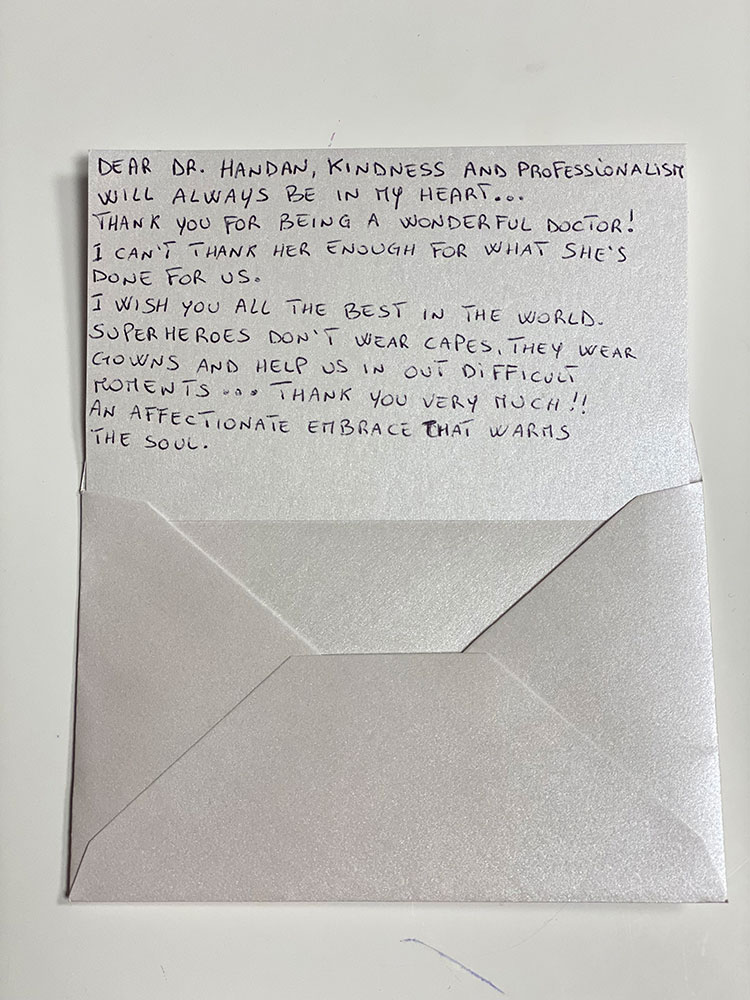 DEAR DR. HANDAN, KINDNESS AND PROFESSIONALISM
WILL ALWAYS BE IN MY HEART...
THANK YOU FOR BEING A WONDERFUL DOCTOR!
I CAN'T THANK HER ENOUGH FOR WHAT SHE'S
DONE FOR US.
I WISH YOU ALL THE BEST IN THE WORLD.
SUPERHEROES DON'T WEAR CAPES, THEY WEAR
GOWNS AND HELP US IN OUT DIFFICULT
MOMENTS... THANK YOU VERY MUCH!!
AN AFFECTIONATE EMBRACE THAT WARMS
THE SOUL.